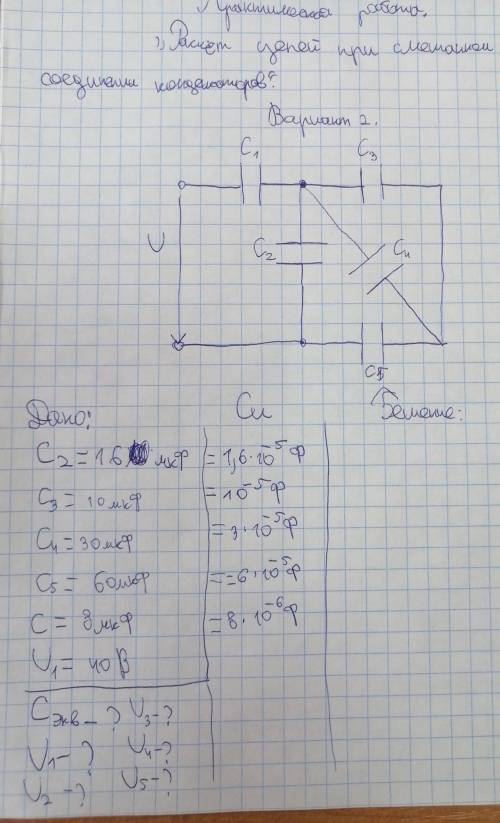 Практическая работа.
"Расчет цепей при смешанном
соединении конденсаторов".
Вариант 2.
C1
C3
U
C2
C4
C5
Дано:
Си
Решение:
C2 = 16 мкф = 1,6·10⁻⁵ Ф
C3 = 10 мкф = 10⁻⁵ Ф
C4 = 30 мкф = 3·10⁻⁵ Ф
C5 = 60 мкф = = 6·10⁻⁵ Ф
C = 8 мкф = 8·10⁻⁶ Ф
U1 = 40 В
Cэкв - ? U3 - ?
U1 - ? U4 - ?
U2 - ? U5 - ?